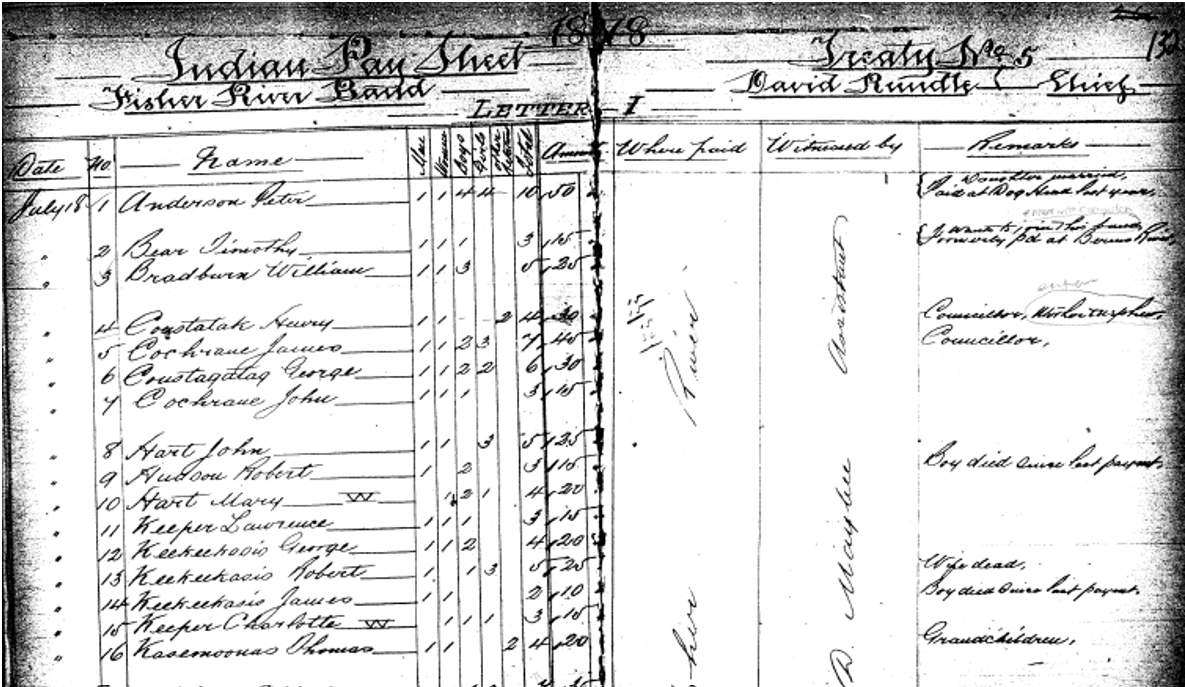 1878
132
Indian Pay Sheet Treaty No. 5
Fisher River Band David Rundle Chief
LETTER I
Date No. Name Men Women Boys Girls Total Amount Where paid Witnessed by Remarks
Daughter married,
July 18 1 Anderson Peter 1 1 4 4 10 50 Paid at Dog Head last year,
" 2 Bear Timothy 1 1 1 3 15 Formerly pd at Berens River,
" 3 Bradburn William 1 1 3 5 25
" 4 Constatak Henry 1 1 2 4 30 Councillor,
" 5 Cochrane James 1 1 2 3 7 45 Councillor,
" 6 Constagatag George 1 1 2 2 6 30
" 7 Cochrane John 1 1 1 3 15
" 8 Hart John 1 1 3 5 25
" 9 Hudson Robert 1 2 3 15 Boy died since last payment,
" 10 Hart Mary W 1 2 1 4 20
" 11 Keeper Lawrence 1 1 1 3 15
" 12 Keekeekasis George 1 1 2 4 20
" 13 Keekeekasis Robert 1 1 3 5 25 Wife dead,
" 14 Keekeekasis James 1 1 2 10 Boy died since last paymt.
" 15 Keeper Charlotte W 1 1 1 3 15
" 16 Kasemoonas Thomas 1 1 2 4 20 Grandchildren,
her River
D. Maybee Assistant